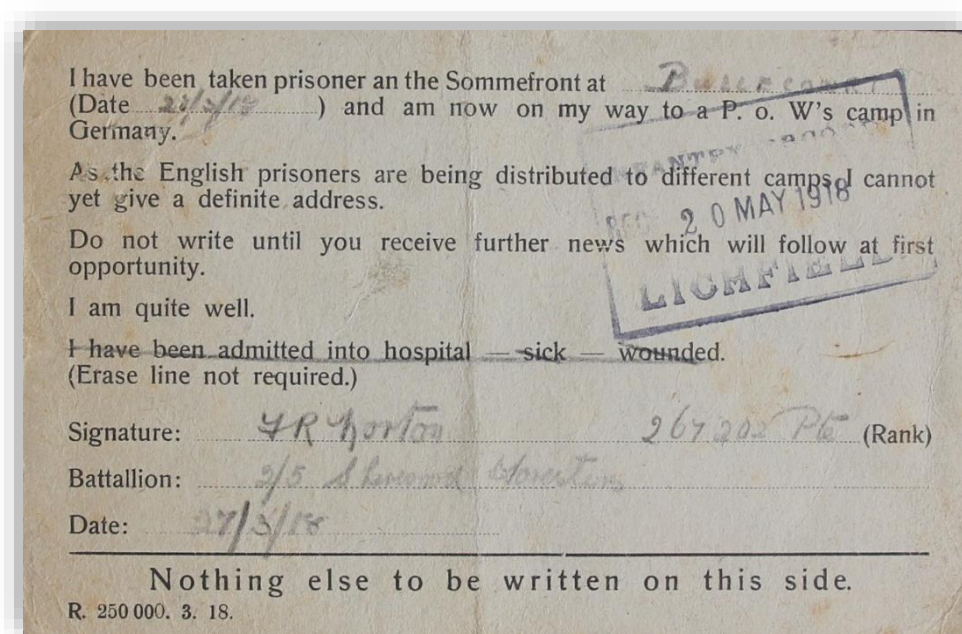 I have been taken prisoner an the Sommefront at Bullecourt
(Date 21/3/18 ) and am now on my way to a P. o. W's camp in
Germany.
As the English prisoners are being distributed to different camps I cannot
yet give a definite address.
Do not write until you receive further news which will follow at first
opportunity.
I am quite well.
I have been admitted into hospital — sick — wounded.
(Erase line not required.)
Signature: FR Norton 267202 Pte (Rank)
Battallion: 2/5 Sherwood Foresters
Date: 27/3/18
Nothing else to be written on this side.
R. 250 000. 3. 18.
INFANTRY
REC
20 MAY 1918
LICHFIELD